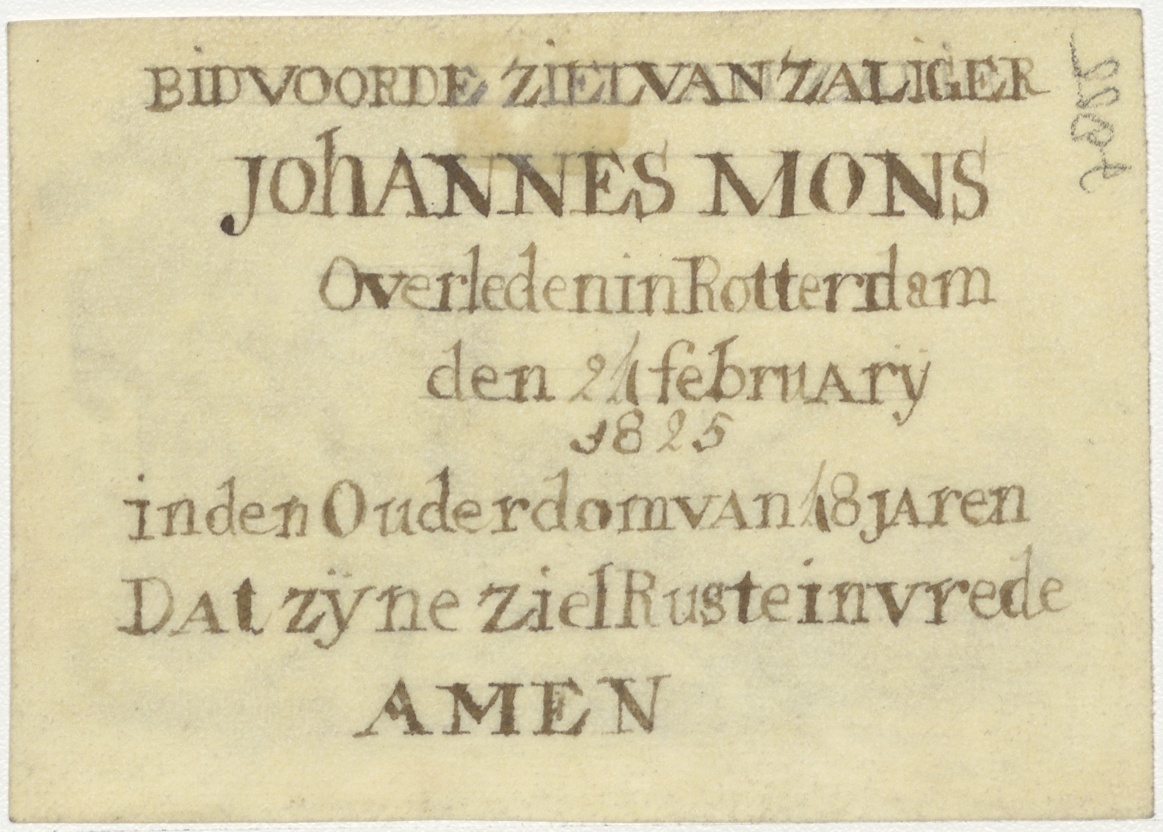 BIDVOORDE ZIELVANZALIGER
JohANNES MONS
OverledeninRotterdam
den 21 februAry
1825
indenOuderdomvAn18jAren
DAt zÿne zielRusteinvrede
AMEN